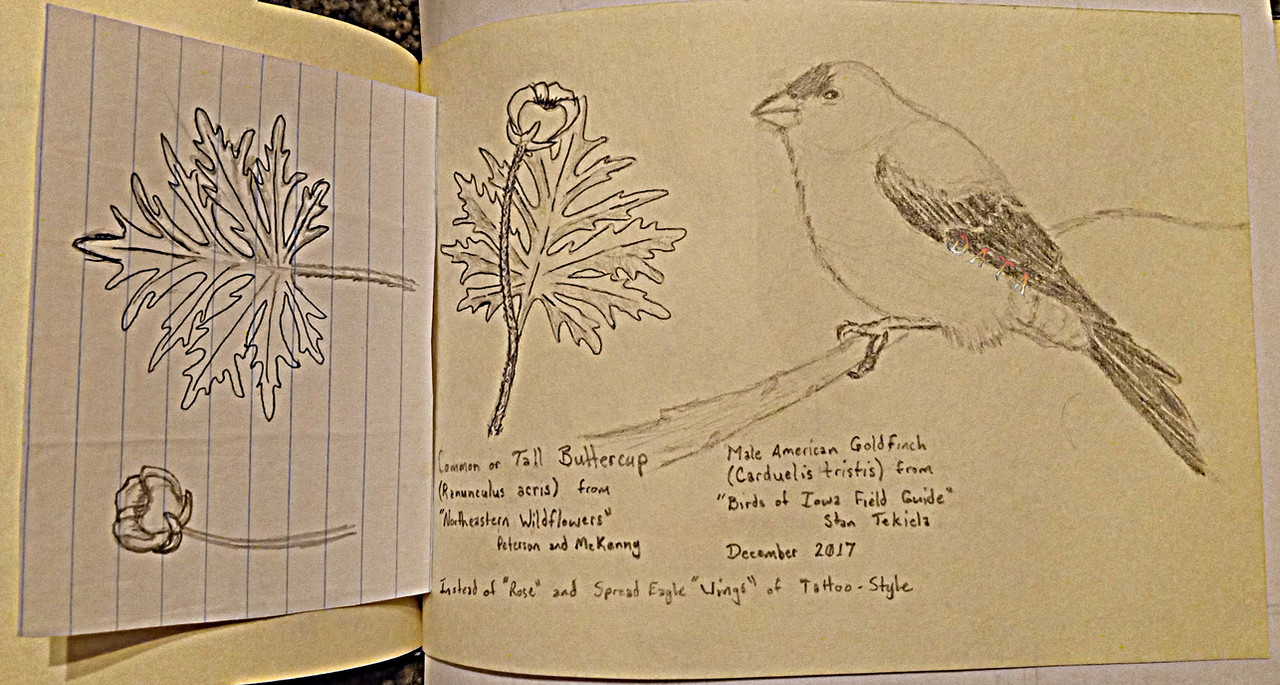 Common or Tall Buttercup
(Ranunculus acris) from
"Northeastern Wildflowers"
Peterson and McKenny
Male American Goldfinch
(Carduelis tristis) from
"Birds of Iowa Field Guide"
Stan Tekiela
December 2017
Instead of "Rose" and Spread Eagle "Wings" of Tattoo-Style